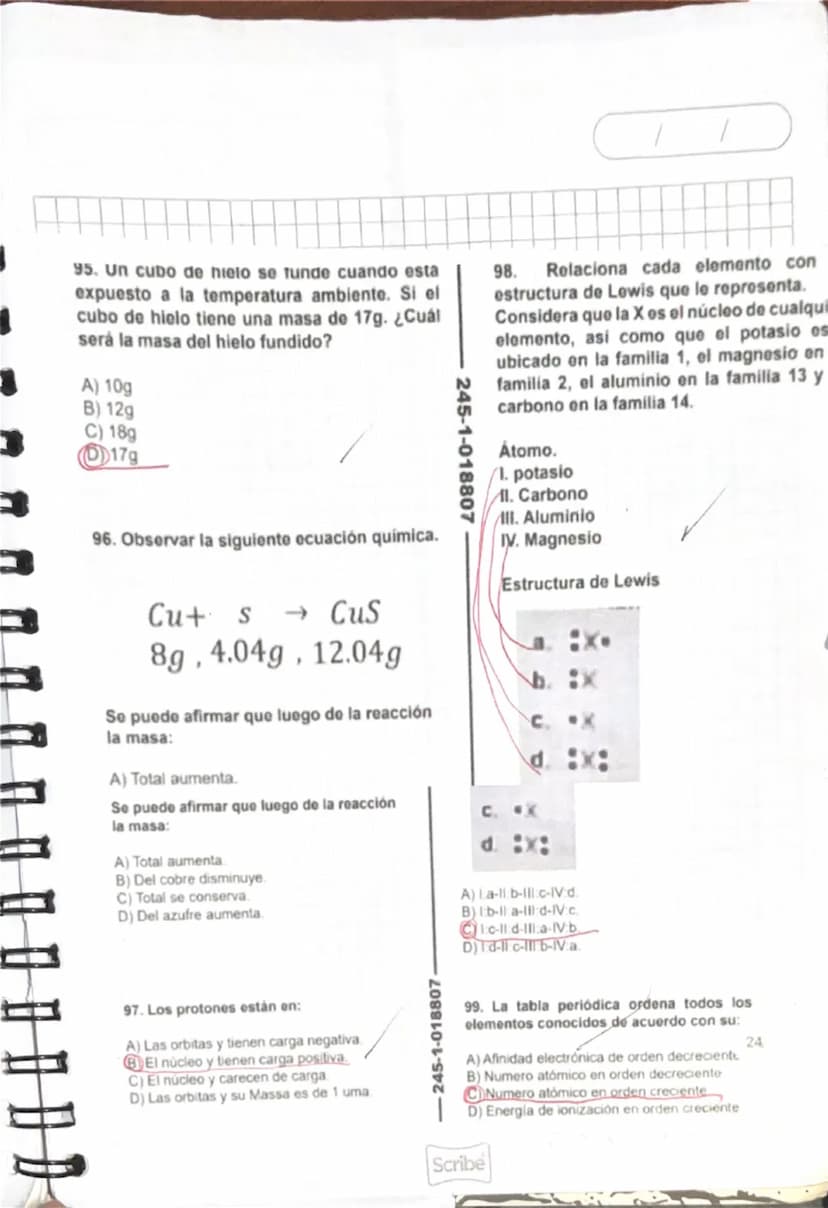 95. Un cubo de hielo se funde cuando esta
expuesto a la temperatura ambiente. Si el
cubo de hielo tiene una masa de 17g. ¿Cuál
será la masa del hielo fundido?
A) 10g
B) 12g
C) 18g
D) 17g
96. Observar la siguiente ecuación química.
Cu+ s → CuS
8g , 4.04g , 12.04g
Se puede afirmar que luego de la reacción
la masa:
A) Total aumenta.
Se puede afirmar que luego de la reacción
la masa:
A) Total aumenta.
B) Del cobre disminuye.
C) Total se conserva.
D) Del azufre aumenta.
97. Los protones están en:
A) Las orbitas y tienen carga negativa.
B) El núcleo y tienen carga positiva.
C) El núcleo y carecen de carga.
D) Las orbitas y su Massa es de 1 uma.
245-1-018807
245-1-018807
98. Relaciona cada elemento con
estructura de Lewis que le representa.
Considera que la X es el núcleo de cualqui
elemento, así como que el potasio es
ubicado en la familia 1, el magnesio en
familia 2, el aluminio en la familia 13 y
carbono en la familia 14.
Átomo.
I. potasio
II. Carbono
III. Aluminio
IV. Magnesio
Estructura de Lewis
a. :X•
b. :X
c. •X
d. :X:
c. •X
d. :X:
A) I:a-II:b-III:c-IV:d.
B) I:b-II:a-III:d-IV:c.
C) I:c-II:d-III:a-IV:b.
D) I:d-II:c-III:b-IV:a.
99. La tabla periódica ordena todos los
elementos conocidos de acuerdo con su:
24
A) Afinidad electrónica de orden decreciente
B) Numero atómico en orden decreciente
C) Numero atómico en orden creciente
D) Energía de ionización en orden creciente
Scribe